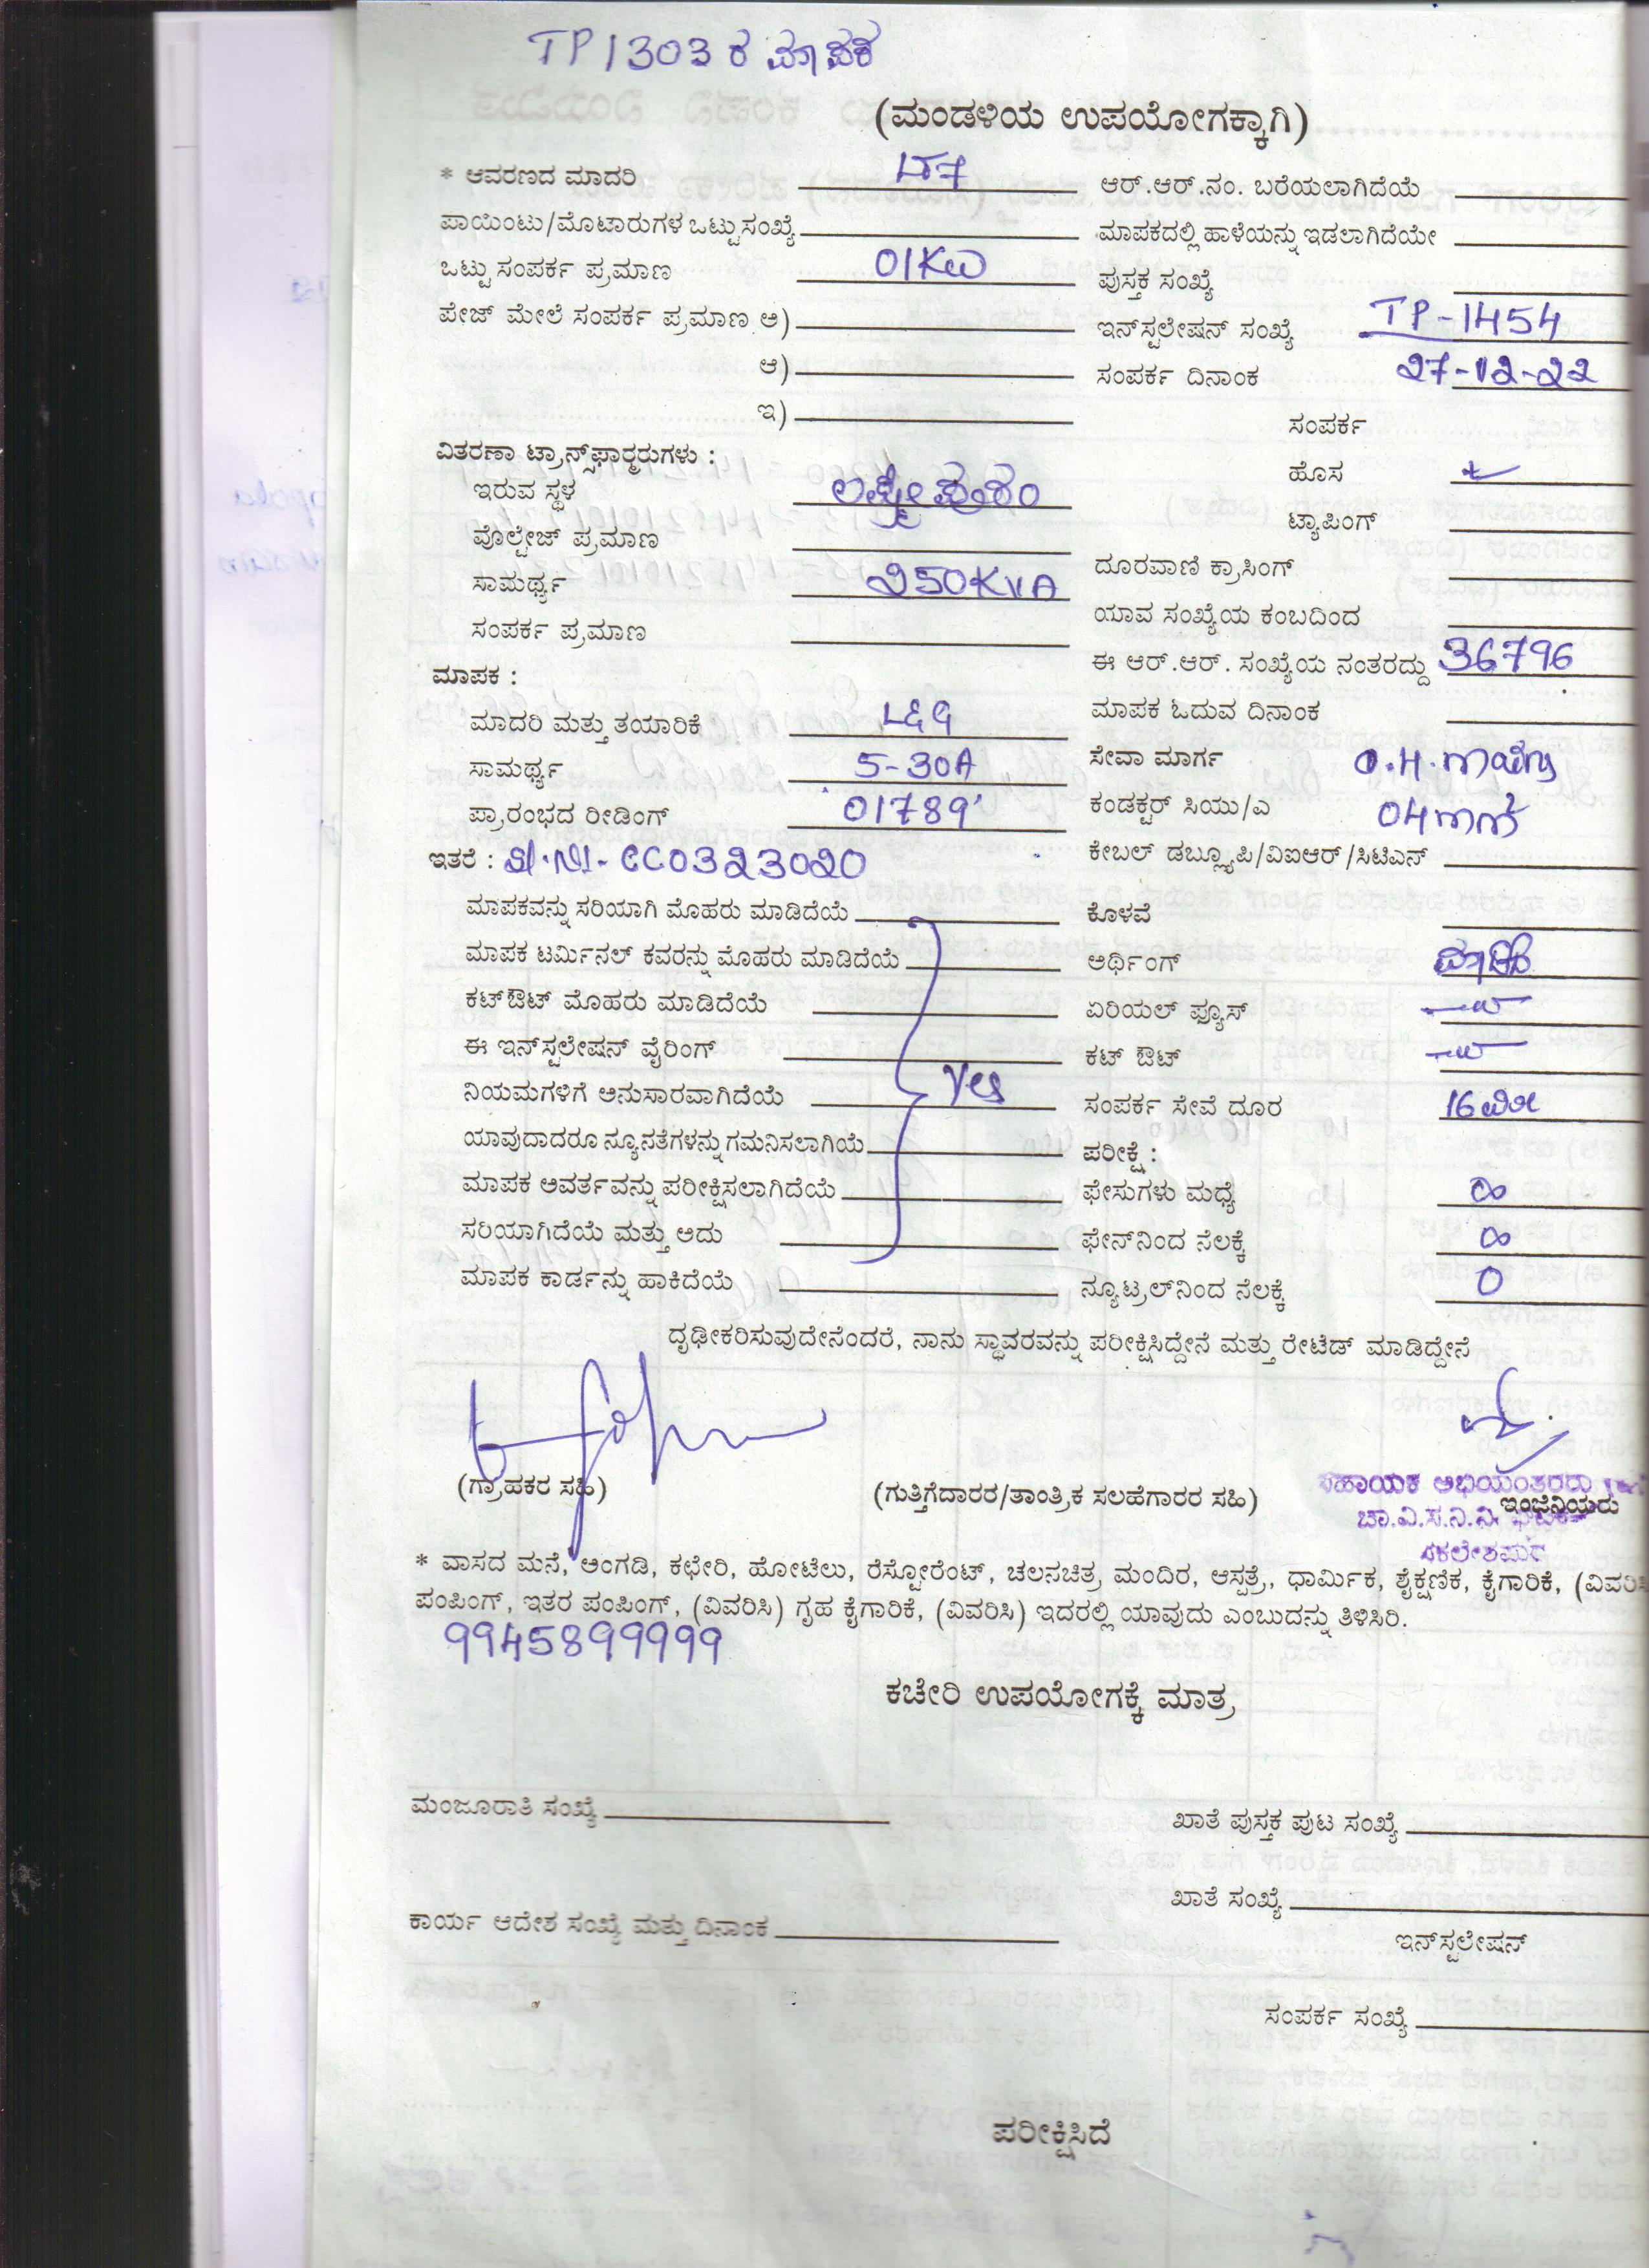 TP1303 ರ ಮಾಪಕ
(ಮಂಡಳಿಯ ಉಪಯೋಗಕ್ಕಾಗಿ)
* ಆವರಣದ ಮಾದರಿ LT7 ಆರ್.ಆರ್.ನಂ. ಬರೆಯಲಾಗಿದೆಯೆ
ಪಾಯಿಂಟು/ಮೊಟಾರುಗಳ ಒಟ್ಟು ಸಂಖ್ಯೆ ಮಾಪಕದಲ್ಲಿ ಹಾಳೆಯನ್ನು ಇಡಲಾಗಿದೆಯೇ
ಒಟ್ಟು ಸಂಪರ್ಕ ಪ್ರಮಾಣ 01KW ಪುಸ್ತಕ ಸಂಖ್ಯೆ
ಪೇಜ್ ಮೇಲೆ ಸಂಪರ್ಕ ಪ್ರಮಾಣ ಅ) ಇನ್‌ಸ್ಟಲೇಷನ್ ಸಂಖ್ಯೆ TP-1454
ಆ) ಸಂಪರ್ಕ ದಿನಾಂಕ 27-12-22
ಇ) ಸಂಪರ್ಕ
ವಿತರಣಾ ಟ್ರಾನ್ಸ್‌ಫಾರ‍್ಮರುಗಳು :
ಇರುವ ಸ್ಥಳ ಲಕ್ಷ್ಮೀಪುರಂ ಹೊಸ
ವೊಲ್ಟೇಜ್ ಪ್ರಮಾಣ ಟ್ಯಾಪಿಂಗ್
ಸಾಮರ್ಥ್ಯ 250KVA ದೂರವಾಣಿ ಕ್ರಾಸಿಂಗ್
ಸಂಪರ್ಕ ಪ್ರಮಾಣ ಯಾವ ಸಂಖ್ಯೆಯ ಕಂಬದಿಂದ
ಮಾಪಕ : ಈ ಆರ್.ಆರ್. ಸಂಖ್ಯೆಯ ನಂತರದ್ದು 36796
ಮಾದರಿ ಮತ್ತು ತಯಾರಿಕೆ L&G ಮಾಪಕ ಓದುವ ದಿನಾಂಕ
ಸಾಮರ್ಥ್ಯ 5-30A ಸೇವಾ ಮಾರ್ಗ O.H.
ಪ್ರಾರಂಭದ ರೀಡಿಂಗ್ 01789 ಕಂಡಕ್ಟರ್ ಸಿಯು/ಎ 04
ಇತರೆ : Sl.No- CC0323020 ಕೇಬಲ್ ಡಬ್ಲ್ಯೂಪಿ/ವಿಐಆರ್/ಸಿಟಿಎನ್
ಮಾಪಕವನ್ನು ಸರಿಯಾಗಿ ಮೊಹರು ಮಾಡಿದೆಯೆ ಕೊಳವೆ
ಮಾಪಕ ಟರ್ಮಿನಲ್ ಕವರನ್ನು ಮೊಹರು ಮಾಡಿದೆಯೆ ಅರ್ಥಿಂಗ್
ಕಟ್‌ಔಟ್ ಮೊಹರು ಮಾಡಿದೆಯೆ ಏರಿಯಲ್ ಫ್ಯೂಸ್
ಈ ಇನ್‌ಸ್ಟಲೇಷನ್ ವೈರಿಂಗ್ ಕಟ್ ಔಟ್
ನಿಯಮಗಳಿಗೆ ಅನುಸಾರವಾಗಿದೆಯೆ Yes ಸಂಪರ್ಕ ಸೇವೆ ದೂರ 16 ಮೀ
ಯಾವುದಾದರೂ ನ್ಯೂನತೆಗಳನ್ನು ಗಮನಿಸಲಾಗಿಯೆ ಪರೀಕ್ಷೆ :
ಮಾಪಕ ಅವರ್ತವನ್ನು ಪರೀಕ್ಷಿಸಲಾಗಿದೆಯೆ ಫೇಸುಗಳು ಮಧ್ಯೆ ∞
ಸರಿಯಾಗಿದೆಯೆ ಮತ್ತು ಅದು ಫೇನ್‌ನಿಂದ ನೆಲಕ್ಕೆ ∞
ಮಾಪಕ ಕಾರ್ಡನ್ನು ಹಾಕಿದೆಯೆ ನ್ಯೂಟ್ರಲ್‌ನಿಂದ ನೆಲಕ್ಕೆ 0
ದೃಢೀಕರಿಸುವುದೇನೆಂದರೆ, ನಾನು ಸ್ಥಾವರವನ್ನು ಪರೀಕ್ಷಿಸಿದ್ದೇನೆ ಮತ್ತು ರೇಟೆಡ್ ಮಾಡಿದ್ದೇನೆ
(ಗ್ರಾಹಕರ ಸಹಿ) (ಗುತ್ತಿಗೆದಾರರ/ತಾಂತ್ರಿಕ ಸಲಹೆಗಾರರ ಸಹಿ) ಇಂಜಿನಿಯರು
ಸಹಾಯಕ ಅಭಿಯಂತರರು
ಚಾ.ವಿ.ಸ.ನಿ.ನಿ.
ಸಕಲೇಶಪುರ
* ವಾಸದ ಮನೆ, ಅಂಗಡಿ, ಕಛೇರಿ, ಹೋಟೆಲು, ರೆಸ್ಟೋರೆಂಟ್, ಚಲನಚಿತ್ರ ಮಂದಿರ, ಆಸ್ಪತ್ರೆ, ಧಾರ್ಮಿಕ, ಶೈಕ್ಷಣಿಕ, ಕೈಗಾರಿಕೆ, (ವಿವರಿಸಿ
ಪಂಪಿಂಗ್, ಇತರ ಪಂಪಿಂಗ್, (ವಿವರಿಸಿ) ಗೃಹ ಕೈಗಾರಿಕೆ, (ವಿವರಿಸಿ) ಇದರಲ್ಲಿ ಯಾವುದು ಎಂಬುದನ್ನು ತಿಳಿಸಿರಿ.
9945899999
ಕಚೇರಿ ಉಪಯೋಗಕ್ಕೆ ಮಾತ್ರ
ಮಂಜೂರಾತಿ ಸಂಖ್ಯೆ ಖಾತೆ ಪುಸ್ತಕ ಪುಟ ಸಂಖ್ಯೆ
ಖಾತೆ ಸಂಖ್ಯೆ
ಕಾರ್ಯ ಆದೇಶ ಸಂಖ್ಯೆ ಮತ್ತು ದಿನಾಂಕ ಇನ್‌ಸ್ಟಲೇಷನ್
ಸಂಪರ್ಕ ಸಂಖ್ಯೆ
ಪರೀಕ್ಷಿಸಿದೆ